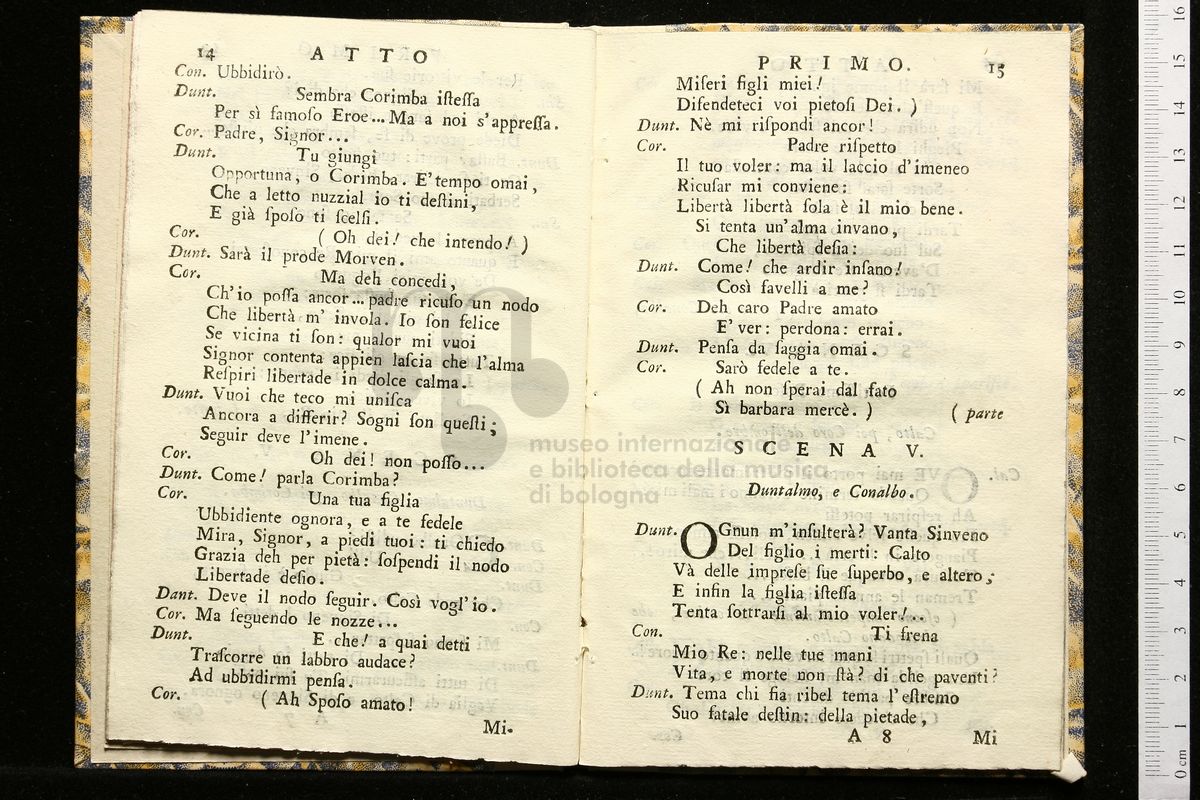 14 ATTO
Con. Ubbidirò.
Dunt. Sembra Corimba iſteſſa
Per sì famoſo Eroe... Ma a noi s'appreſſa.
Cor. Padre, Signor...
Dunt. Tu giungi
Opportuna, o Corimba. E' tempo omai,
Che a letto nuzzial io ti deſtini,
E già ſpoſo ti ſcelſi.
Cor. ( Oh dei! che intendo! )
Dunt. Sarà il prode Morven.
Cor. Ma deh concedi,
Ch'io poſſa ancor... padre ricuſo un nodo
Che libertà m' invola. Io ſon felice
Se vicina ti ſon: qualor mi vuoi
Signor contenta appien laſcia che l'alma
Reſpiri libertade in dolce calma.
Dunt. Vuoi che teco mi uniſca
Ancora a differir? Sogni ſon queſti;
Seguir deve l'imene.
Cor. Oh dei! non poſſo...
Dunt. Come! parla Corimba?
Cor. Una tua figlia
Ubbidiente ognora, e a te fedele
Mira, Signor, a piedi tuoi: ti chiedo
Grazia deh per pietà: ſoſpendi il nodo
Libertade deſio.
Dant. Deve il nodo ſeguir. Così vogl'io.
Cor. Ma ſeguendo le nozze...
Dunt. E che! a quai detti
Traſcorre un labbro audace?
Ad ubbidirmi penſa.
Cor. ( Ah Spoſo amato!
Mi-
PRIMO. 15
Miſeri figli miei!
Difendeteci voi pietoſi Dei. )
Dunt. Nè mi riſpondi ancor!
Cor. Padre riſpetto
Il tuo voler: ma il laccio d'imeneo
Ricuſar mi conviene:
Libertà libertà ſola è il mio bene.
Si tenta un'alma invano,
Che libertà deſia:
Dunt. Come! che ardir inſano!
Così favelli a me?
Cor. Deh caro Padre amato
E' ver: perdona: errai.
Dunt. Penſa da ſaggia omai.
Cor. Sarò fedele a te.
( Ah non ſperai dal fato
Sì barbara mercè. ) ( parte
SCENA V.
Duntalmo, e Conalbo.
Dunt. OGnun m'inſulterà? Vanta Sinveno
Del figlio i merti: Calto
Và delle impreſe ſue ſuperbo, e altero;
E infin la figlia iſteſſa
Tenta ſottrarſi al mio voler!..
Con. Ti frena
Mio Re: nelle tue mani
Vita, e morte non ſtà? di che paventi?
Dunt. Tema chi fia ribel tema l'eſtremo
Suo fatale deſtin: della pietade,
A 8 Mi
museo internazionale
e biblioteca della musica
di bologna
0 cm 1 2 3 4 5 6 7 8 9 10 11 12 13 14 15 16